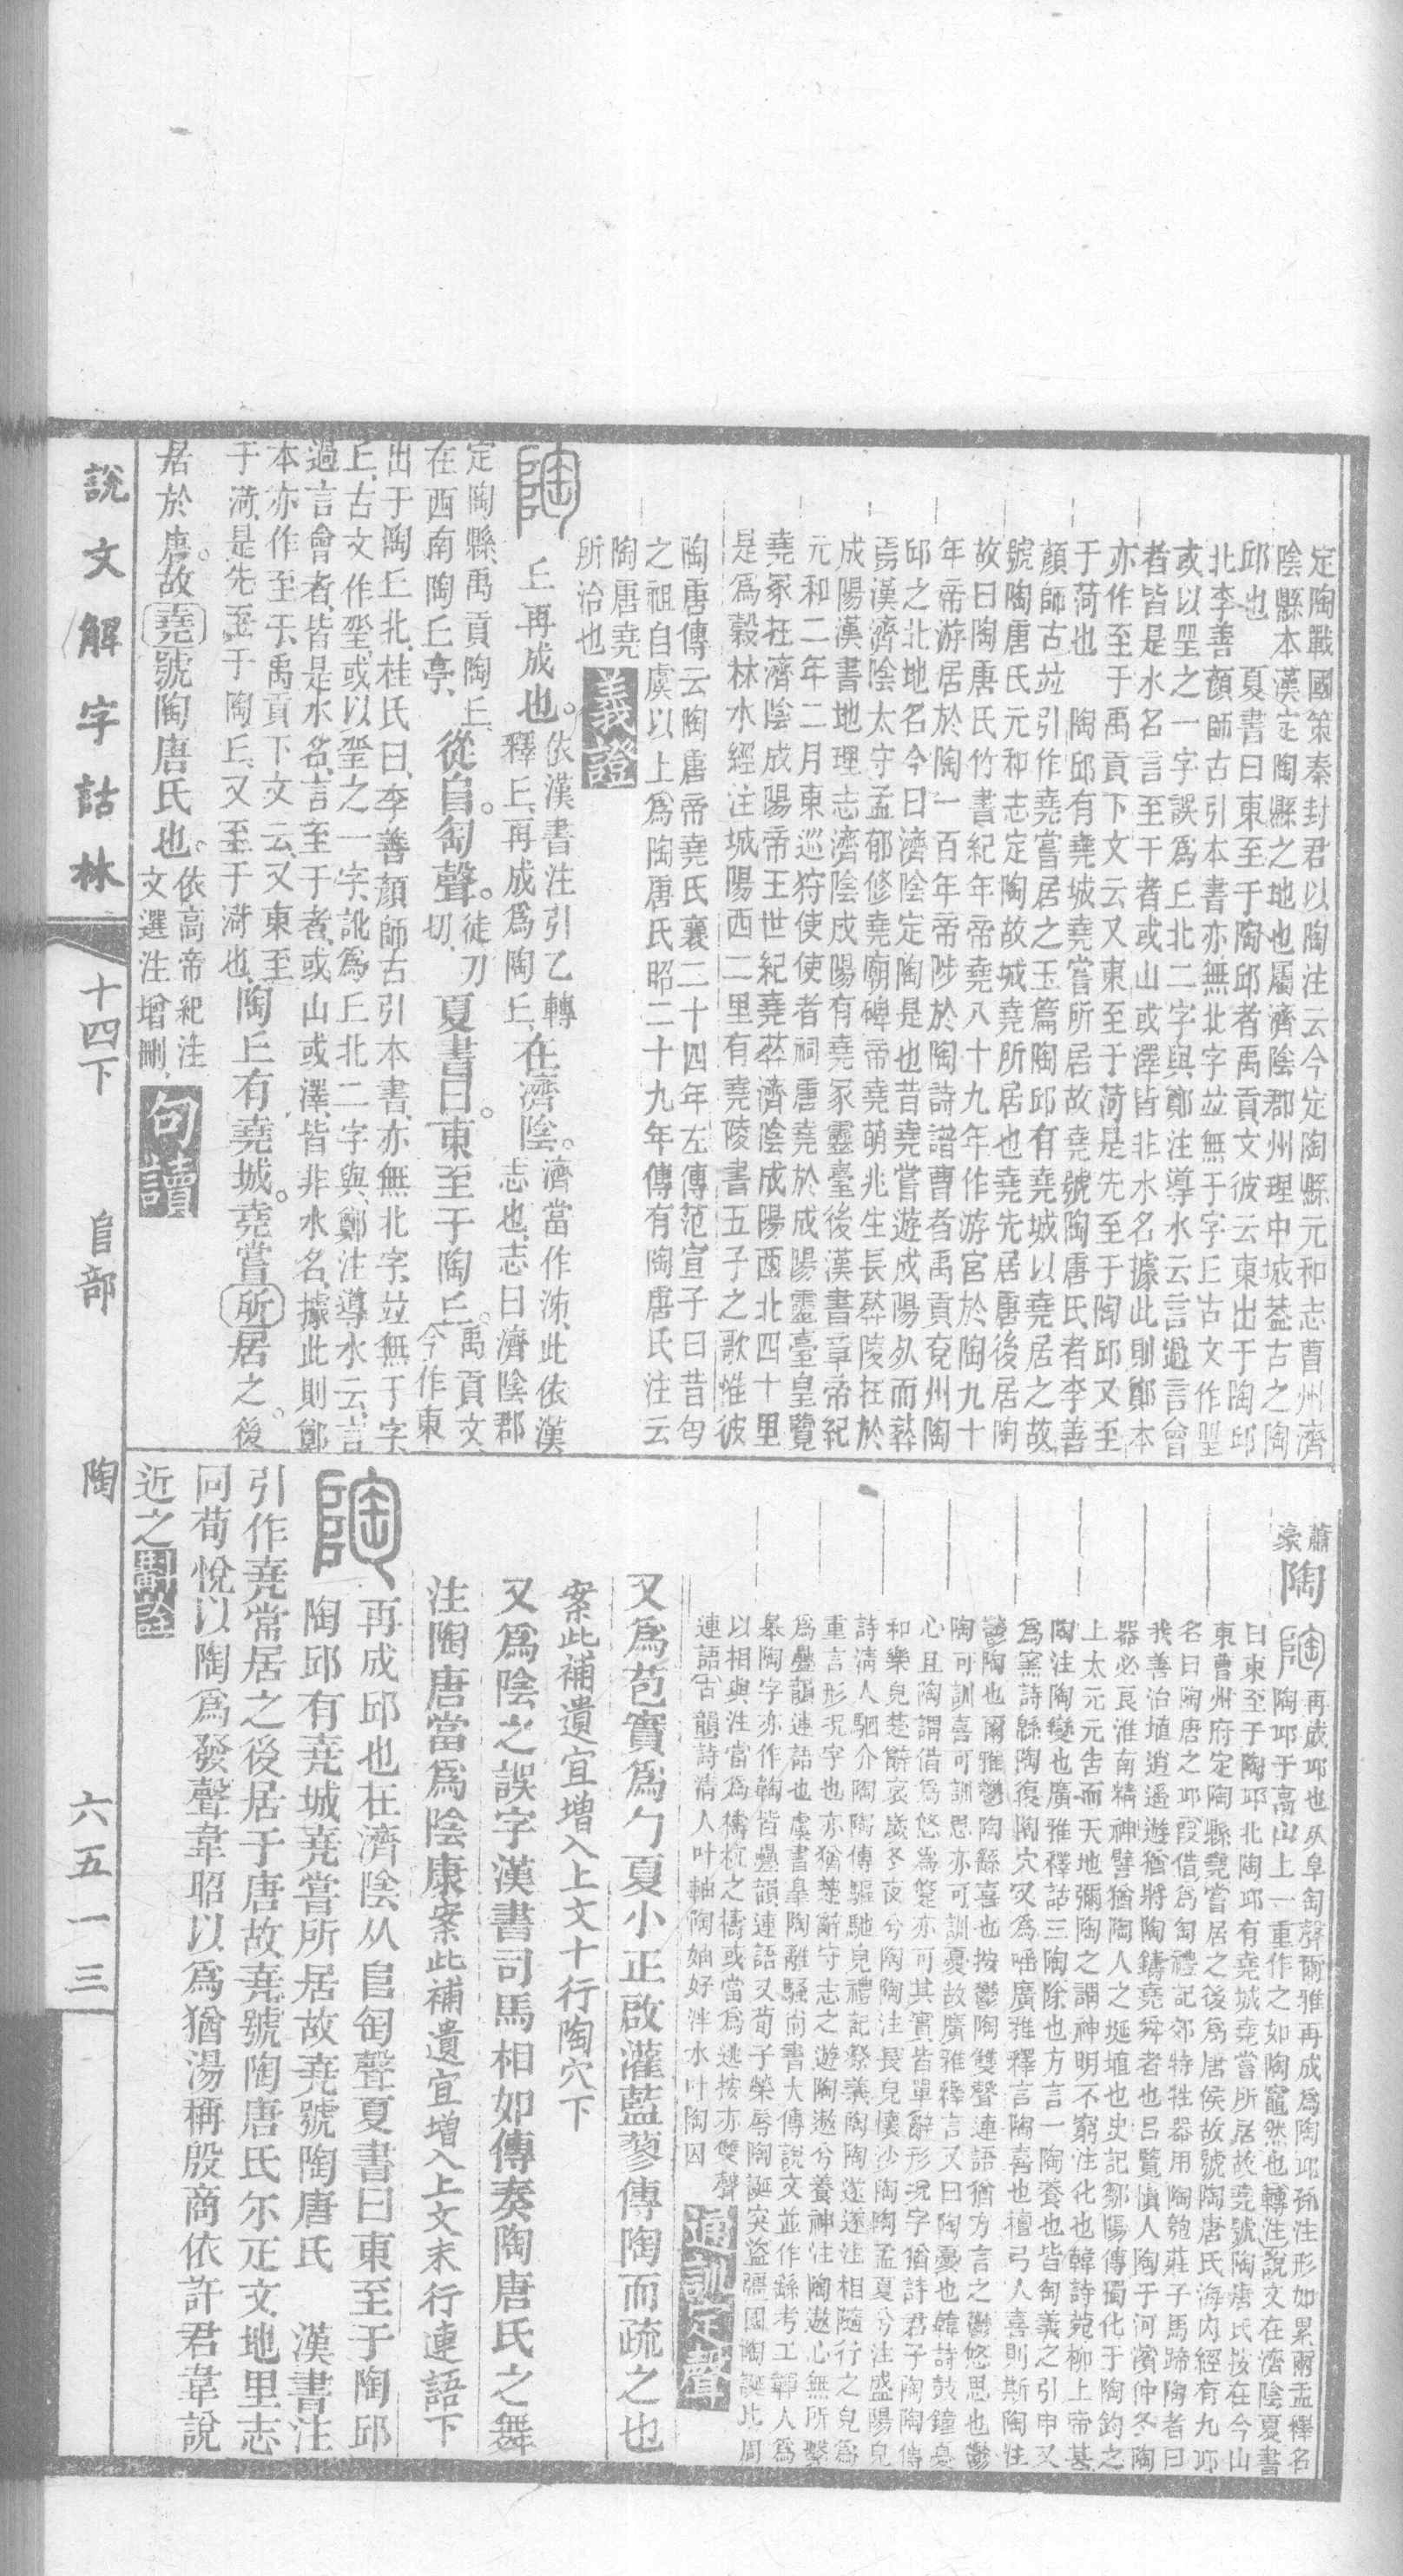 定陶戰國策秦封君以陶注云今定陶縣元和志曹州濟
陰縣本漢定陶縣之地也屬濟陰郡州理中城葢古之陶
邱也　夏書曰東至于陶邱者禹貢文彼云東出于陶邱
北李善顏師古引本書亦無北字竝無于字丘古文作𡊣
或以𡊣之一字誤爲丘北二字與鄭注導水云言過言會
者皆是水名言至于者或山或澤皆非水名據此則鄭本
亦作至于禹貢下文云又東至于菏是先至于陶邱又至
于菏也　陶邱有堯城堯嘗所居故堯號陶唐氏者李善
顏師古竝引作堯嘗居之玉篇陶邱有堯城以堯居之故
號陶唐氏元和志定陶故城堯所居也堯先居唐後居陶
故曰陶唐氏竹書紀年帝堯八十九年作游宮於陶九十
年帝游居於陶一百年帝陟於陶詩譜曹者禹貢兗州陶
邱之北地名今曰濟陰定陶是也昔堯嘗遊成陽死而葬
焉漢濟陰太守孟郁修堯廟碑帝堯萌兆生長葬陵在於
成陽漢書地理志濟陰成陽有堯冢靈臺後漢書章帝紀
元和二年二月東巡狩使使者祠唐堯於成陽靈臺皇覽
堯冢在濟陰成陽帝王世紀堯葬濟陰成陽西北四十里
是爲穀林水經注城陽西二里有堯陵書五子之歌惟彼
陶唐傳云陶唐帝堯氏襄二十四年左傳范宣子曰昔匄
之祖自虞以上爲陶唐氏昭二十九年傳有陶唐氏注云
陶唐堯
所治也 義證
陶 丘再成也。依漢書注引乙轉
釋丘、再成爲陶丘、在濟陰。濟當作泲、此依漢
志也、志曰濟陰郡
定陶縣、禹貢陶丘
在西南陶丘亭、從𨸏。匋聲。徒刀
切、夏書曰。東至于陶丘。禹貢文
今作東
出于陶丘北、桂氏曰、李善顏師古引本書、亦無北字、竝無于字、
丘、古文作𡊣、或以𡊣之一字、訛爲丘北二字與、鄭注導水云、言
過言會者、皆是水名、言至于者、或山或澤、皆非水名、據此則鄭
本亦作至于、禹貢下文云、又東至
于菏、是先至于陶丘、又至于菏也、陶丘有堯城。堯嘗所居之。後
居於唐。故堯號陶唐氏也。依高帝紀注
文選注增刪、句讀
蕭
豪 陶
陶 再成邱也从阜匋聲爾雅再成爲陶邱孫注形如累兩盂釋名
陶邱于高山上一重作之如陶竈然也轉注說文在濟陰夏書
曰東至于陶邱北陶邱有堯城堯嘗所居故堯號陶唐氏按在今山
東曹州府定陶縣堯嘗居之後爲唐侯故號陶唐氏海內經有九邱
名曰陶唐之邱叚借爲匋禮記郊特牲器用陶匏莊子馬蹄陶者曰
我善治埴逍遙遊猶將陶鑄堯舜者也呂覽慎人陶于河濱仲冬陶
器必良淮南精神譬猶陶人之埏埴也史記鄒陽傳獨化于陶鈞之
上太元元告而天地彌陶之謂神明不窮注化也韓詩菀柳上帝甚
陶注陶變也廣雅釋詁三陶除也方言一陶養也皆匋義之引申又
爲窯詩緜陶復陶穴又爲嗂廣雅釋言陶喜也檀弓人喜則斯陶注
鬱陶也爾雅鬱陶繇喜也按鬱陶雙聲連語猶方言之鬱悠思也鬱
陶可訓喜可訓思亦可訓憂故廣雅釋言又曰陶憂也韓詩鼓鐘憂
心且陶謂借爲悠爲𢥠亦可其實皆單辭形況字猶詩君子陶陶傳
和樂皃楚辭哀歲冬夜兮陶陶注長皃懷沙陶陶孟夏兮注盛陽皃
詩淸人駟介陶陶傳驅馳皃禮記祭義陶陶遂遂注相隨行之皃爲
重言形況字也亦猶楚辭守志之遊陶遨兮養神注陶遨心無所繫
爲疊韻連語也虞書皋陶離騷尚書大傳說文並作繇考工韗人爲
皋陶字亦作鞠皆疊韻連語又荀子榮辱陶誕突盜彊國陶誕比周
以相與注當爲檮杌之檮或當爲逃按亦雙聲
連語古韻詩淸人叶軸陶妯好泮水叶陶囚 通訓定聲
又爲苞實爲勹夏小正啟灌藍蓼傳陶而疏之也
案此補遺宜增入上文十行陶穴下
又爲陰之誤字漢書司馬相如傳奏陶唐氏之舞
注陶唐當爲陰康案此補遺宜增入上文末行連語下
陶 再成邱也在濟陰从𨸏匋聲夏書曰東至于陶邱
陶邱有堯城堯嘗所居故堯號陶唐氏　漢書注
引作堯常居之後居于唐故堯號陶唐氏尒疋文地里志
同荀悅以陶爲發聲韋昭以爲猶湯稱殷商依許君韋說
近之 斠詮
說文解字詁林　十四下　𨸏部　陶　六五一三